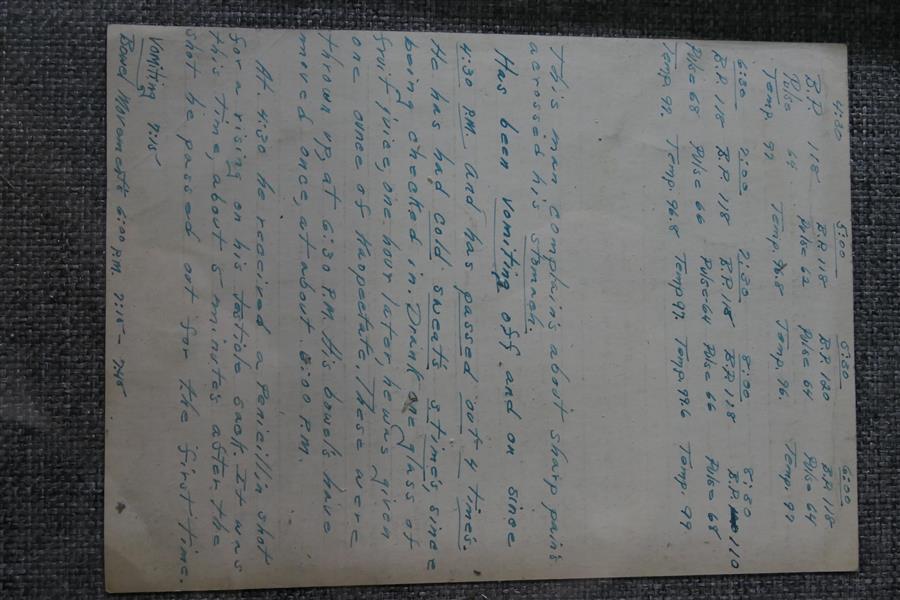 4:30 5:00 5:30 6:00
B.P. 118 B.P. 118 B.P. 120 B.P. 118
Pulse 64 Pulse 62 Pulse 64 Pulse 64
Temp 97 Temp. 96.8 Temp. 96. Temp. 97
6:30 7:00 7:30 8:00 8:30
B.P. 118 B.P. 118 B.P. 118 B.P. 118 B.P. 110
Pulse 68 Pulse 66 Pulse 64 Pulse 66 Pulse 68
Temp. 97. Temp. 96.8 Temp 97. Temp. 97.6 Temp. 97
This man complains about sharp pains
acrossed his stomach.
Has been vomiting off and on since
4:30 P.M. and has passed out 4 times.
He has had cold sweats 5 times, since
being checked in. Drank one glass of
fruit juice, one hour later, he was given
one once of Kappectate. These were
thrown up at 6:30 P.M. His bowels have
moved once, at about 6:00 P.M.
At 4:30 he received a Penicillin shot
for a rising on his testicle sack. It was
this time, about 5 minutes after the
shot he passed out for the first time.
Vomiting 7:15
Bowel Movements 6:00 P.M. 7:15 - 7:45